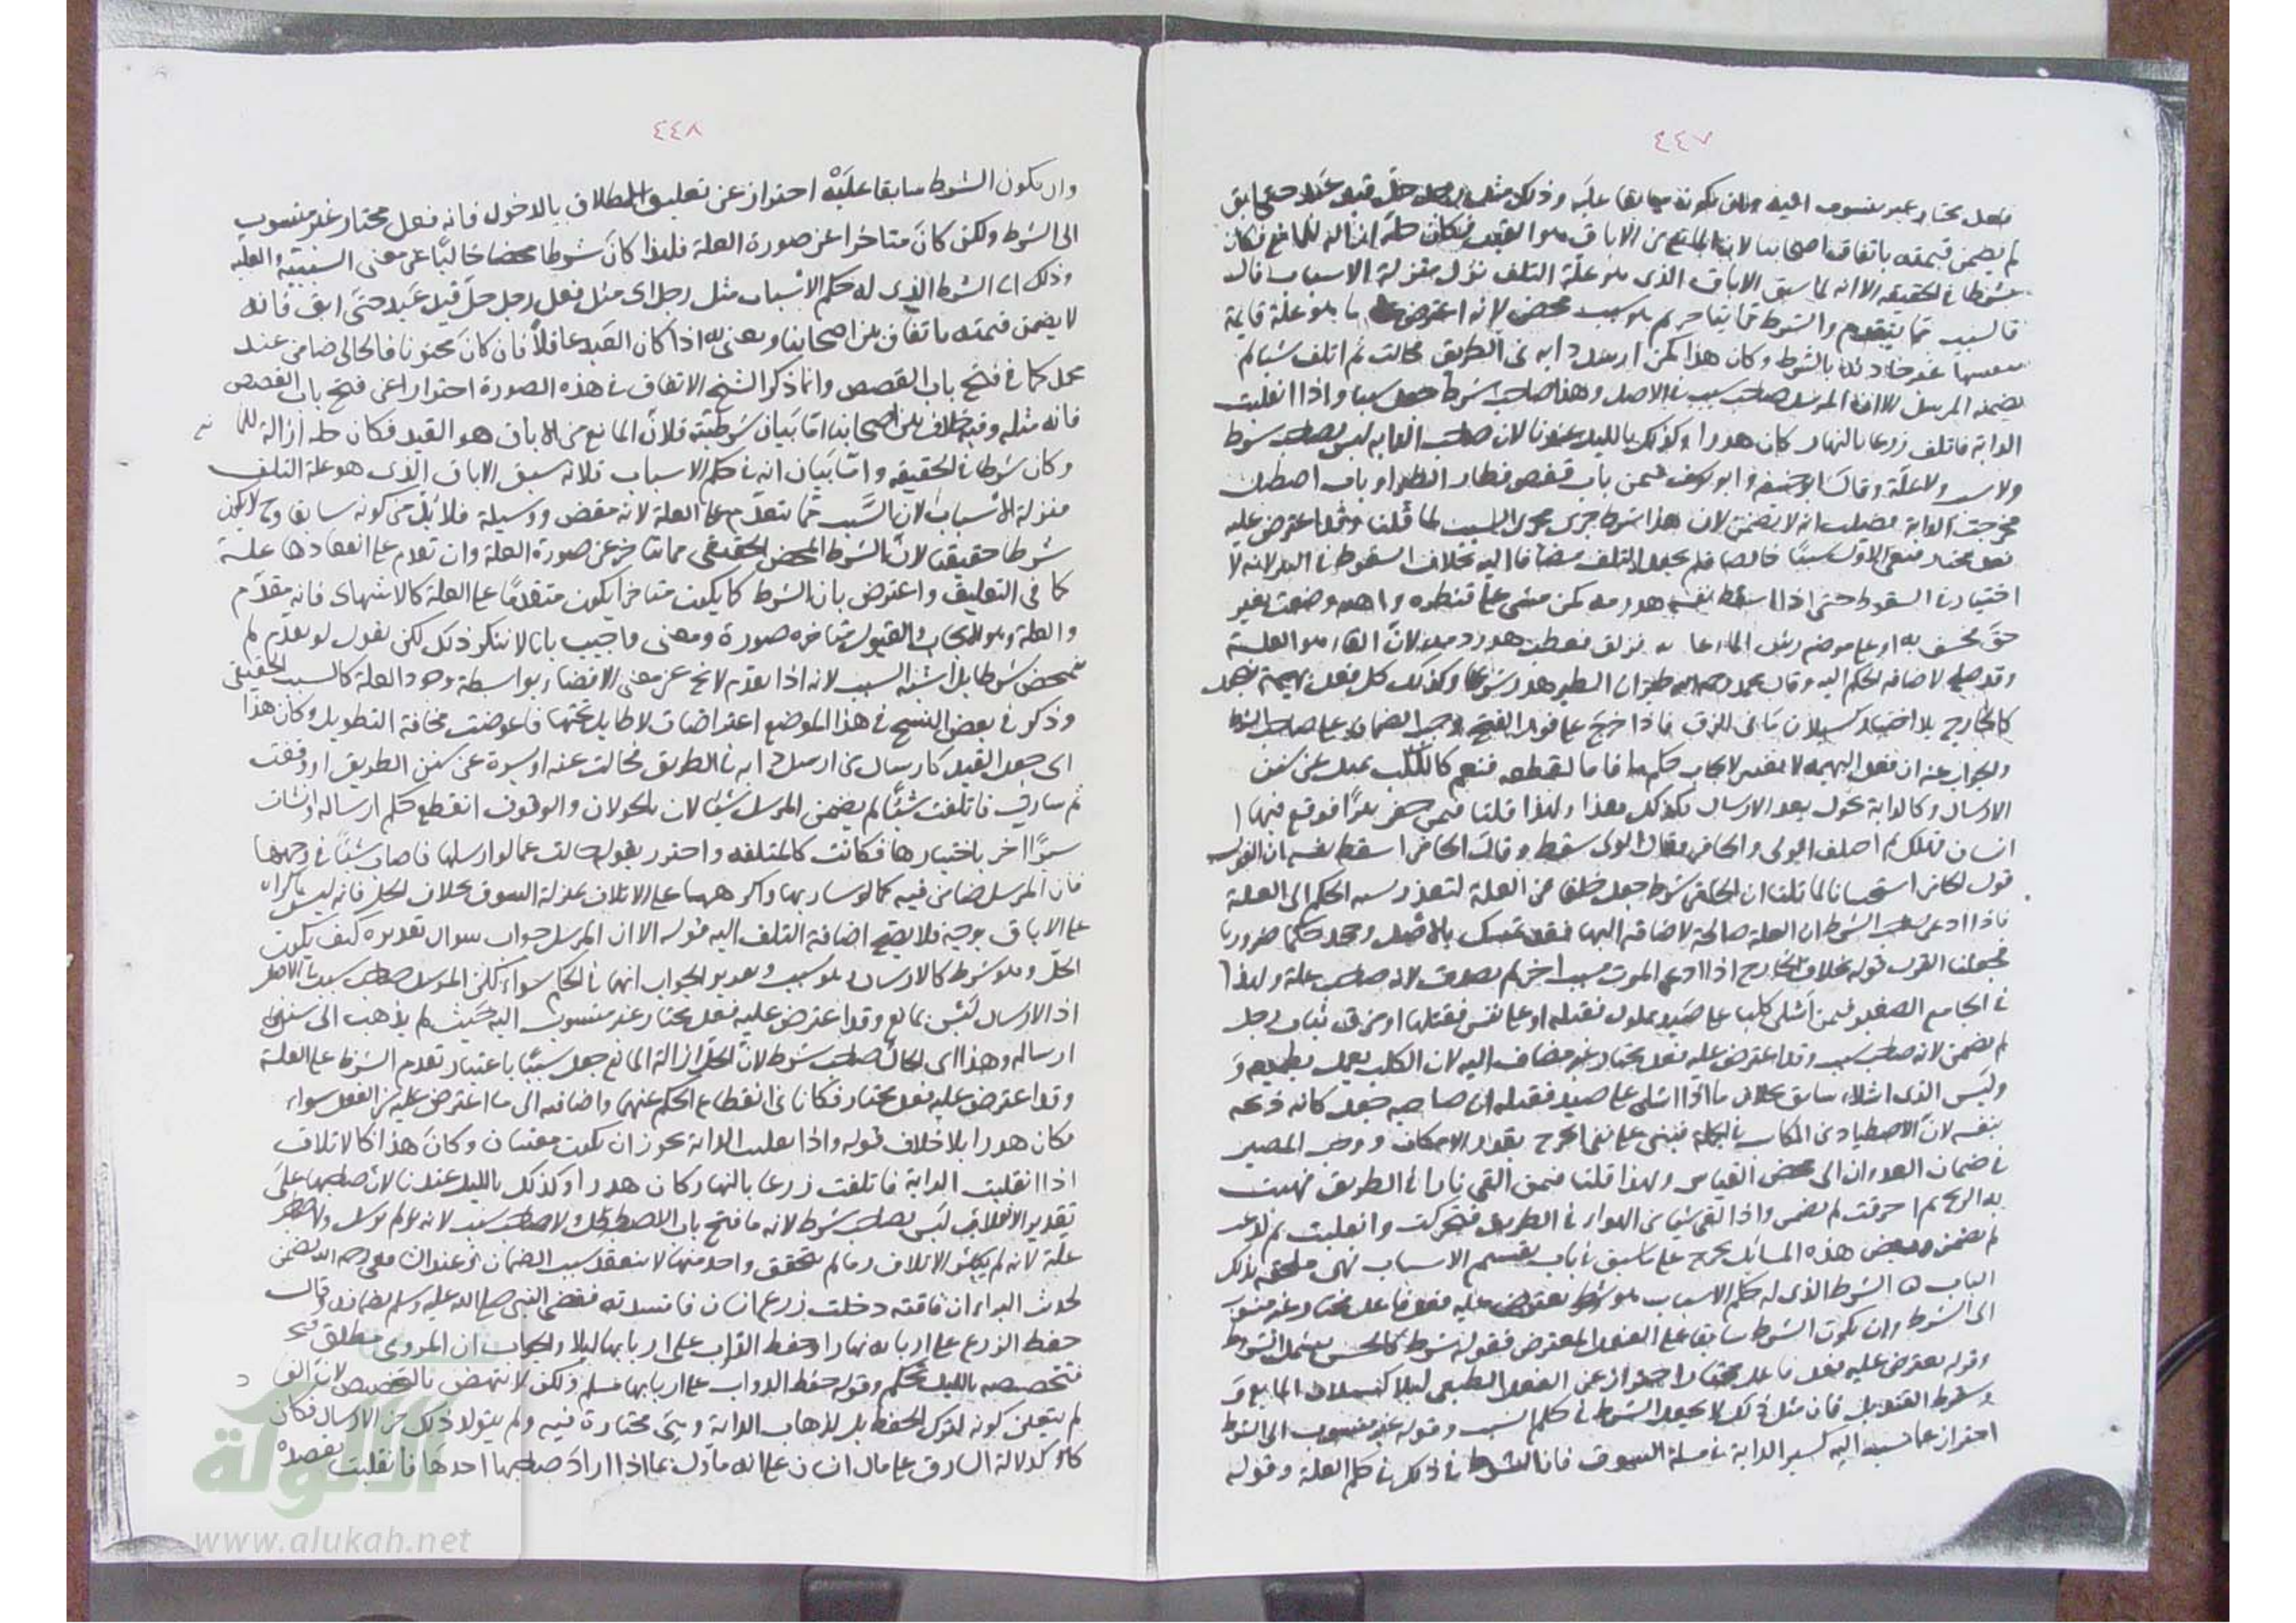 ٤٤٧
فعل مختار غير منسوب اليه وان يكون سابقا عليه وذلك مثل رجل حل قيد عبد حتى ابق
لم يضمن قيمته باتفاق اصحابنا لان المانع من الاباق هو القيد فكان حله ازالة للمانع فكان
شرطا في الحقيقة الا انه لما سبق الاباق الذي هو علة التلف نزل منزلة الاسباب فالـ
فالسبب مما يتقدم والشرط مما يتاخر ثم هو سبب محض لانه اعترض عليه ما هو علة قايمة
بنفسها غير حادثة بالشرط وكان هذا كمن ارسل دابة في الطريق فجالت ثم اتلف شيا لم
يضمنه المرسل الا ان المرسل صاحب سبب في الاصل وهذا صاحب شرط جعل سببا واذا انفلتت
الدابة فاتلف زرعا بالنهار كان هدرا وكذلك بالليل عندنا لان صاحب الدابة ليس بصاحب شرط
ولا سبب ولا علة وقال ابو حنيفة وابو يوسف فيمن باب قفص فطار الطير او باب اصطبل
فخرجت الدابة فضلت انه لا يضمن لان هذا شرط جرى مجرى السبب لما قلنا وقد اعترض عليه
فعل مختار فبقي الاول سببا خالصا فلم يجعل التلف مضافا اليه بخلاف السقوط في البير لانه لا
اختيار له في السقوط حتى اذا اسقط نفسه هدر دمه كمن مشى على قنطرة واهية وضعت بغير
حق فخسف به او على موضع رش الماء فزلق فعطب هدر دمه لان الالقاء هو العلة
وقد صلح لاضافة الحكم اليه وقال محمد رحمه الله طيران الطير هدر شرعا وكذلك كل فعل بهيمة فيجعل
كالخارج بلا اختيار كسيلان ما في الزق فاذا خرج على فور الفتح وجب الضمان على صاحب الشرط
والجواب عنه ان فعل البهيمة لا يعتبر لايجاب حكم ما فاما لقطعه فنعم كالكلب يميل عن سنن
الارسال وكالدابة تجول بعد الارسال فكذلك هذا ولهذا قلنا فيمن حفر بئرا فوقع فيها
انسان فهلك ثم اختلف الولي والحافر فقال الولي سقط وقال الحافر اسقط نفسه ان القول
قول الحافر استحسانا لما قلنا ان الحفر شرط جعل خلفا عن العلة لتعذر نسبة الحكم الى العلة
فاذا ادعى صاحب الشرط ان العلة صالحة لاضافة اليها فقد تمسك بالاصل وجحد حكما ضروريا
فجعلنا القول قوله بخلاف الجارح اذا ادعى الموت بسبب اخر لم يصدق لانه صاحب علة ولهذا
في الجامع الصغير فيمن اشلى كلبا على صيد مملوك فقتله او على نفس فقتلها او مزق ثياب رجل
لم يضمن لانه صاحب سبب وقد اعترض عليه فعل مختار غير مضاف اليه لان الكلب يعمل بطبعه و
وليس الذي اشلاه سابق بخلاف ما اذا اشلى على صيد فقتله ان صاحبه جعل كانه ذبحه
بنفسه لان الاصطياد من المكاسب في الجملة فبني على نفي الحرج بقدر الامكان ووجب المصير
في ضمان العدوان الى محض القياس ولهذا قلنا فيمن القى نارا في الطريق فهبت
به الريح ثم احرقت لم يضمن واذا القى شيا من الهوام في الطريق فتحركت وانقلبت ثم لدغت
لم يضمن وبعض هذه المسائل تخرج على ما سبق في باب تقسيم الاسباب فهي ملحقة بذلك
الباب ه الشرط الذي له حكم الاسباب هو شرط يعترض عليه فعل فاعل مختار غير منسوب
الى الشرط وان يكون الشرط سابقا على الفعل المعترض فقوله شرط كالجنس يشمل الشروط
وقوله يعترض عليه فعل فاعل مختار احتراز عن الفعل الطبيعي كسيلان المايع و
وسقوط القنديل فان مثل ذلك لا يجعل الشرط في حكم السبب وقوله غير منسوب الى الشرط
احتراز عما نسب اليه كسير الدابة في مسئلة السوق فان الشرط في ذلك في حكم العلة وقوله
٤٤٨
وان يكون الشرط سابقا عليه احتراز عن تعليق الطلاق بالدخول فانه فعل مختار غير منسوب
الى الشرط ولكن كان متاخرا عن صورة العلة فلهذا كان شرطا محضا خاليا عن معنى السببية والعلية
وذلك اى الشرط الذي له حكم الاسباب مثل رجل اى مثل فعل رجل حل قيد عبد حتى ابق فانه
لا يضمن قيمته باتفاق بين اصحابنا ويعنى به اذا كان العبد عاقلا فان كان مجنونا فالحال ضامن عند
محمد كما في فتح باب القفص وانما ذكر الشيخ الاتفاق في هذه الصورة احترازا عن فتح باب القفص
فانه مثله وفيه خلاف بين اصحابنا اما بيان شرطيته فلان المانع من الاباق هو القيد فكان حله ازالة للمانع
وكان شرطا في الحقيقة واما بيان انه في حكم الاسباب فلانه سبق الاباق الذي هو علة التلف
منزلة الاسباب لان السبب مما يتقدم على العلة لانه مفض ووسيلة فلا بد من كونه سابقا وح لا يكون
شرطا حقيقيا لان الشرط المحض الحقيقي مما يتاخر عن صورة العلة وان تقدم على انعقادها علة
كما في التعليق واعترض بان الشرط كما يكون متاخرا يكون متقدما على العلة كالاشهاد فانه مقدم
والعلة وهو الايجاب والقبول متاخرة صورة ومعنى فاجيب بانا لا ننكر ذلك لكن نقول لو تقدم لم
يتمحض شرطا بل اشبه السبب لانه اذا تقدم لا يخ عن معنى الافضاء بواسطة وجود العلة كالسبب الحقيقي
وذكر في بعض النسخ في هذا الموضع اعتراضات لا طايل تحتها فاعرضت مخافة التطويل وكان هذا
اى حل القيد كارسال من ارسل دابة في الطريق فجالت عنه او يسرة عن سنن الطريق او وقفت
ثم سارت فاتلفت شيئا لم يضمن المرسل شيئا لان بالجولان والوقوف انقطع حكم ارساله وانشات
سيرا اخر باختيارها فكانت كالمنفلتة واحترز بقوله جالت عما لو ارسلها فاصاب شيئا في وجهها
فان المرسل ضامن فيه كما لو سار بها واكرهها على الاتلاف بمنزلة السوق بخلاف الحل فانه ليس باكراه
على الاباق بوجه فلا يصح اضافة التلف اليه قوله الا ان المرسل جواب سوال تقديره كيف يكون
الحل وهو شرط كالارسال وهو سبب وتقدير الجواب انهما في الحكم سواء لكن المرسل صاحب سبب في الاصل
اذ الارسال ليس بمانع وقد اعترض عليه فعل مختار غير منسوب اليه حيث لم يذهب الى سنن
ارساله وهذا اى الحال صاحب شرط لان الحل ازالة المانع جعل سببا باعتبار تقدم الشرط على العلة
وقد اعترض عليه فعل مختار فكانا في انقطاع الحكم عنهما واضافته الى ما اعترض عليه من الفعل سواء
فكان هدرا بلا خلاف قوله واذا انفلتت الدابة يجوز ان يكون وكان هذا كالاتلاف
اذا انفلتت الدابة فاتلفت زرعا بالنهار كان هدرا وكذلك بالليل عندنا لان صاحبها على
تقدير الانفلات ليس بصاحب شرط لانه ما فتح باب الاصطبل ولا صاحب سبب لانه لم يرسل ولا صاحب
علة لانه لم يباشر الاتلاف وما لم يتحقق واحد منها لا ينعقد سبب الضمان وعند الشافعي رحمه الله يضمن
لحديث البراء ان ناقته دخلت زرع انسان فافسدته فقضى النبي صلى الله عليه وسلم بضمانه وقال
حفظ الزرع على اربابه نهارا وحفظ الدواب على اربابها ليلا والجواب ان المروى مطلق
فتخصيصه بالليل تحكم وقوله حفظ الدواب على اربابها مسلم ولكن لا ينتهض بالتخصيص لان
لم يتعين كونه لترك الحفظ بل لذهاب الدابة وهي مختارة فيه ولم يتولد ذلك من الارسال فكان
كدلالة السارق على مال انسان على انه ماول بما اذا اراد صاحبها اخذها فانفلتت بقصده
الألوكة
www.alukah.net